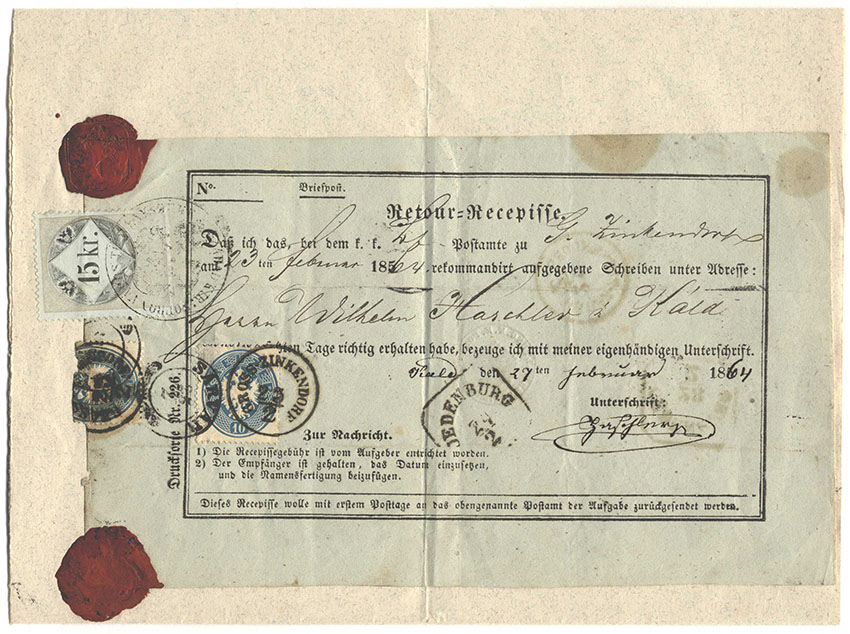 No. Briefpost.
Retour-Recepisse.
Daß ich das, bei dem k. k. Postamte zu G. Zinkendorf
am 23 ten Februar 1864. rekommandirt aufgegebene Schreiben unter Adresse:
Herrn Wilhelm Haschler à Káld
Tage richtig erhalten habe, bezeuge ich mit meiner eigenhändigen Unterschrift.
Kald den 27 ten Februar 1864
Unterschrift:
Haschler
Zur Nachricht.
1) Die Recepissegebühr ist vom Aufgeber entrichtet worden.
2) Der Empfänger ist gehalten, das Datum einzusetzen,
und die Namensfertigung beizufügen.
Dieses Recepisse wolle mit erstem Posttage an das obengenannte Postamt der Aufgabe zurückgesendet werden.
Drucksorte Nr. 226
15 kr.
10
GROSS-ZINKENDORF
23/2
SÁRVÁR
JEDENBURG